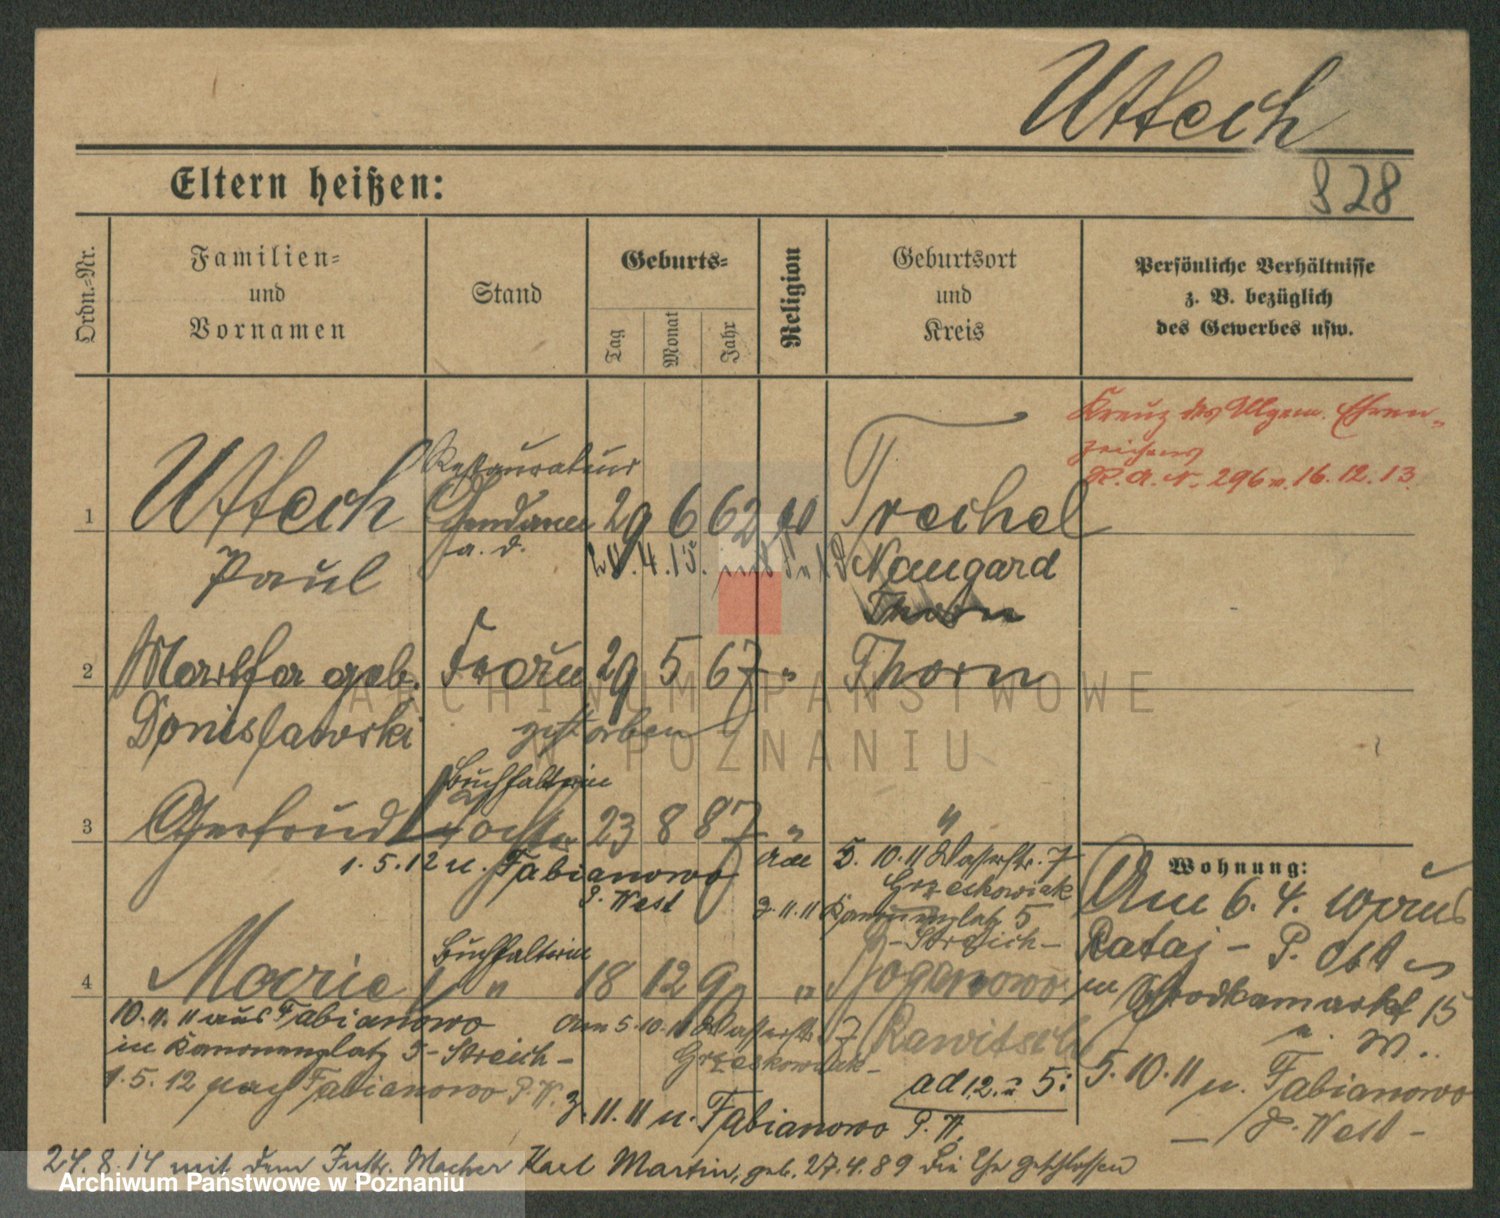 Uttech
828
Eltern heißen:
Ordn.-Nr.
Familien-
und
Vornamen
Stand
Geburts-
Tag
Monat
Jahr
Religion
Geburtsort
und
Kreis
Persönliche Verhältnisse
z. B. bezüglich
des Gewerbes usw.
Kreuz des Allgem. Ehren-
zeichens
K.A.N. 296 v. 16.12.13.
1 Uttech 29 6 62 Trechel
a. d.
Paul Naugard
Thorn
2 Martha geb. Frau 29 5 67 " Thorn
Donislawski gestorben
Buchhalterin
3 Gertrud Tochter 23 8 87 " "
1.5.12 u. Fabianowo
P. West
am 5.10.11 Wasserstr. 7
Grzeskowiak
3.11.11 Kanonenplatz 5
- Streich -
Wohnung:
Am 6.4. 10 aus
Rataj - P. Ost
in 15
n. W..
5.10.11 n. Fabianowo
- P. West -
Buchhalterin
4 Marie " 18 12 9 "
Rawitsch
10.11.11 aus Fabianowo
in Kanonenplatz 5 - Streich -
1.5.12 nach Fabianowo P.W.
am 5.10.11 Wasserstr. 7
Grzeskowiak -
ad 1, 2. u 5:
3.11.11 n. Fabianowo P. W.
24.8.14 mit dem Karl Martin, geb. 27.4.89 die Ehe geschlossen
ARCHIWUM PAŃSTWOWE
W POZNANIU
Archiwum Państwowe w Poznaniu